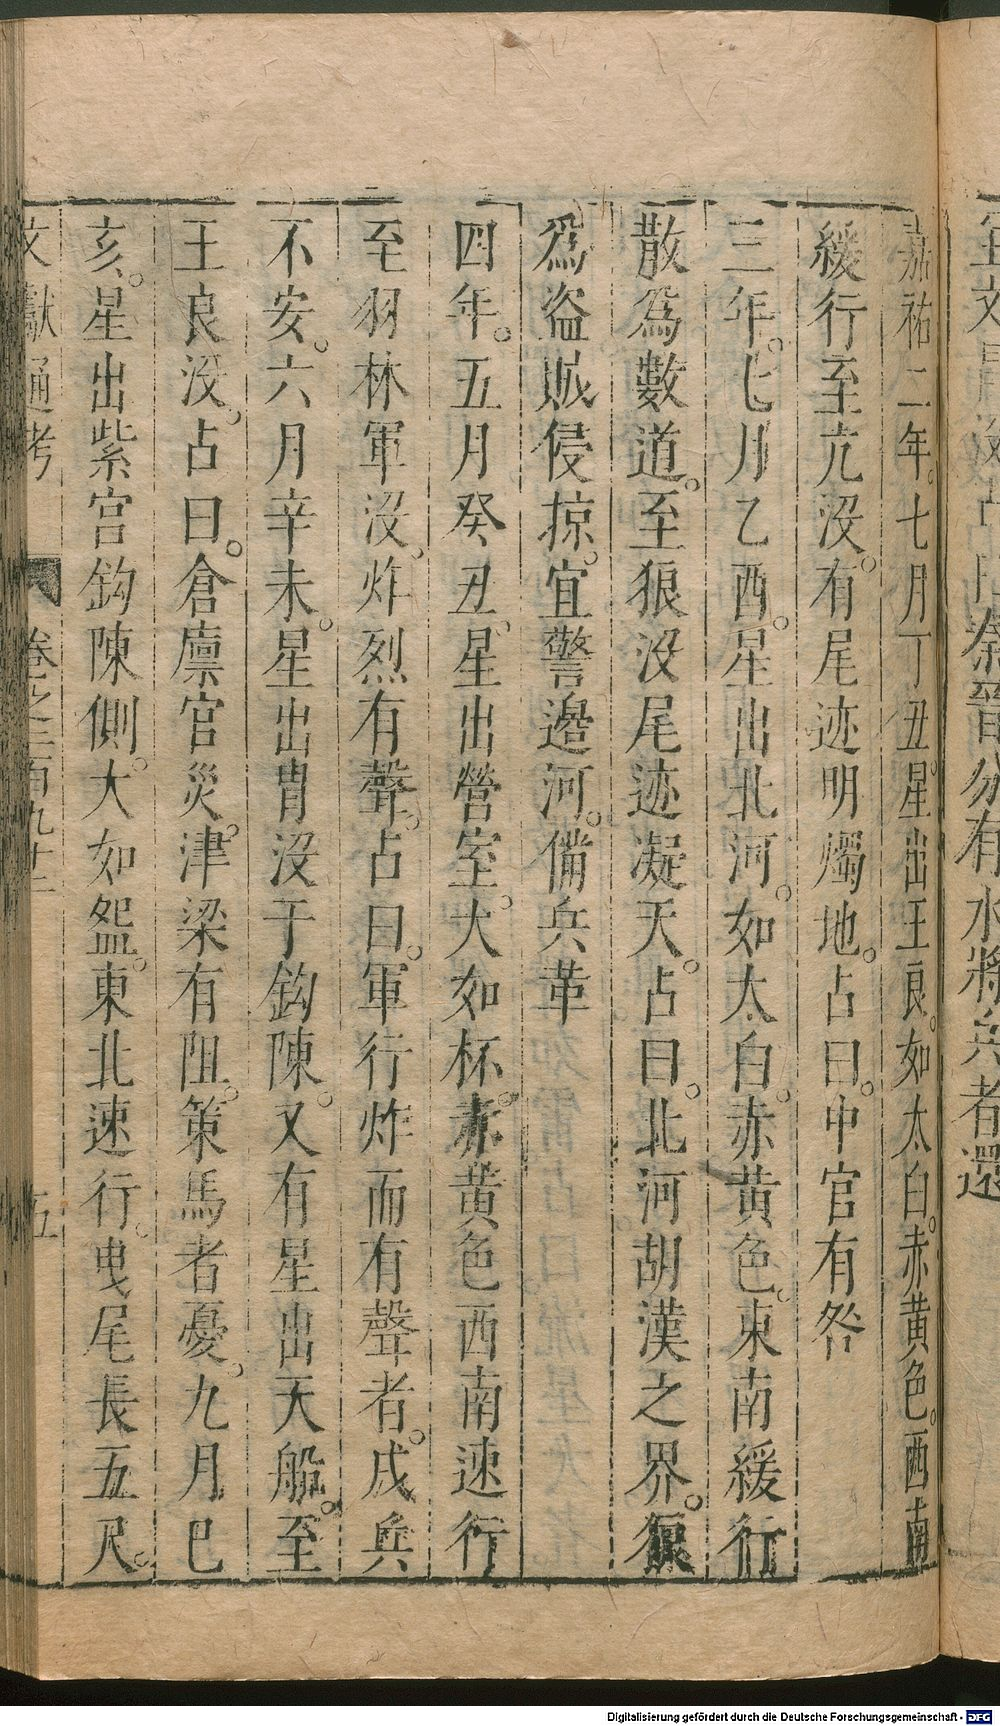 秦晉分有水將兵者還
嘉祐二年。七月丁丑。星出王良。如太白。赤黃色。西南
緩行至亢沒。有尾迹明燭地。占曰。中官有咎
三年。七月乙酉。星出北河。如太白。赤黃色。東南緩行
散爲數道。至狼沒尾迹凝天。占曰。北河胡漢之界。狼
爲盗賊侵掠。宜警邊河。備兵革
四年。五月癸丑。星出營室。大如杯。赤黃色西南速行
至羽林軍沒。炸烈有聲。占曰。軍行炸而有聲者。戍兵
不安。六月辛未。星出胃沒于鈎陳。又有星出天船。至
王良沒。占曰。倉廪官災。津梁有阻。策馬者憂。九月巳
亥。星出紫宫鈎陳側。大如盌。東北速行。曳尾長五尺。
文獻通考 卷之二百九十二 五
Digitalisierung gefördert durch die Deutsche Forschungsgemeinschaft - DFG